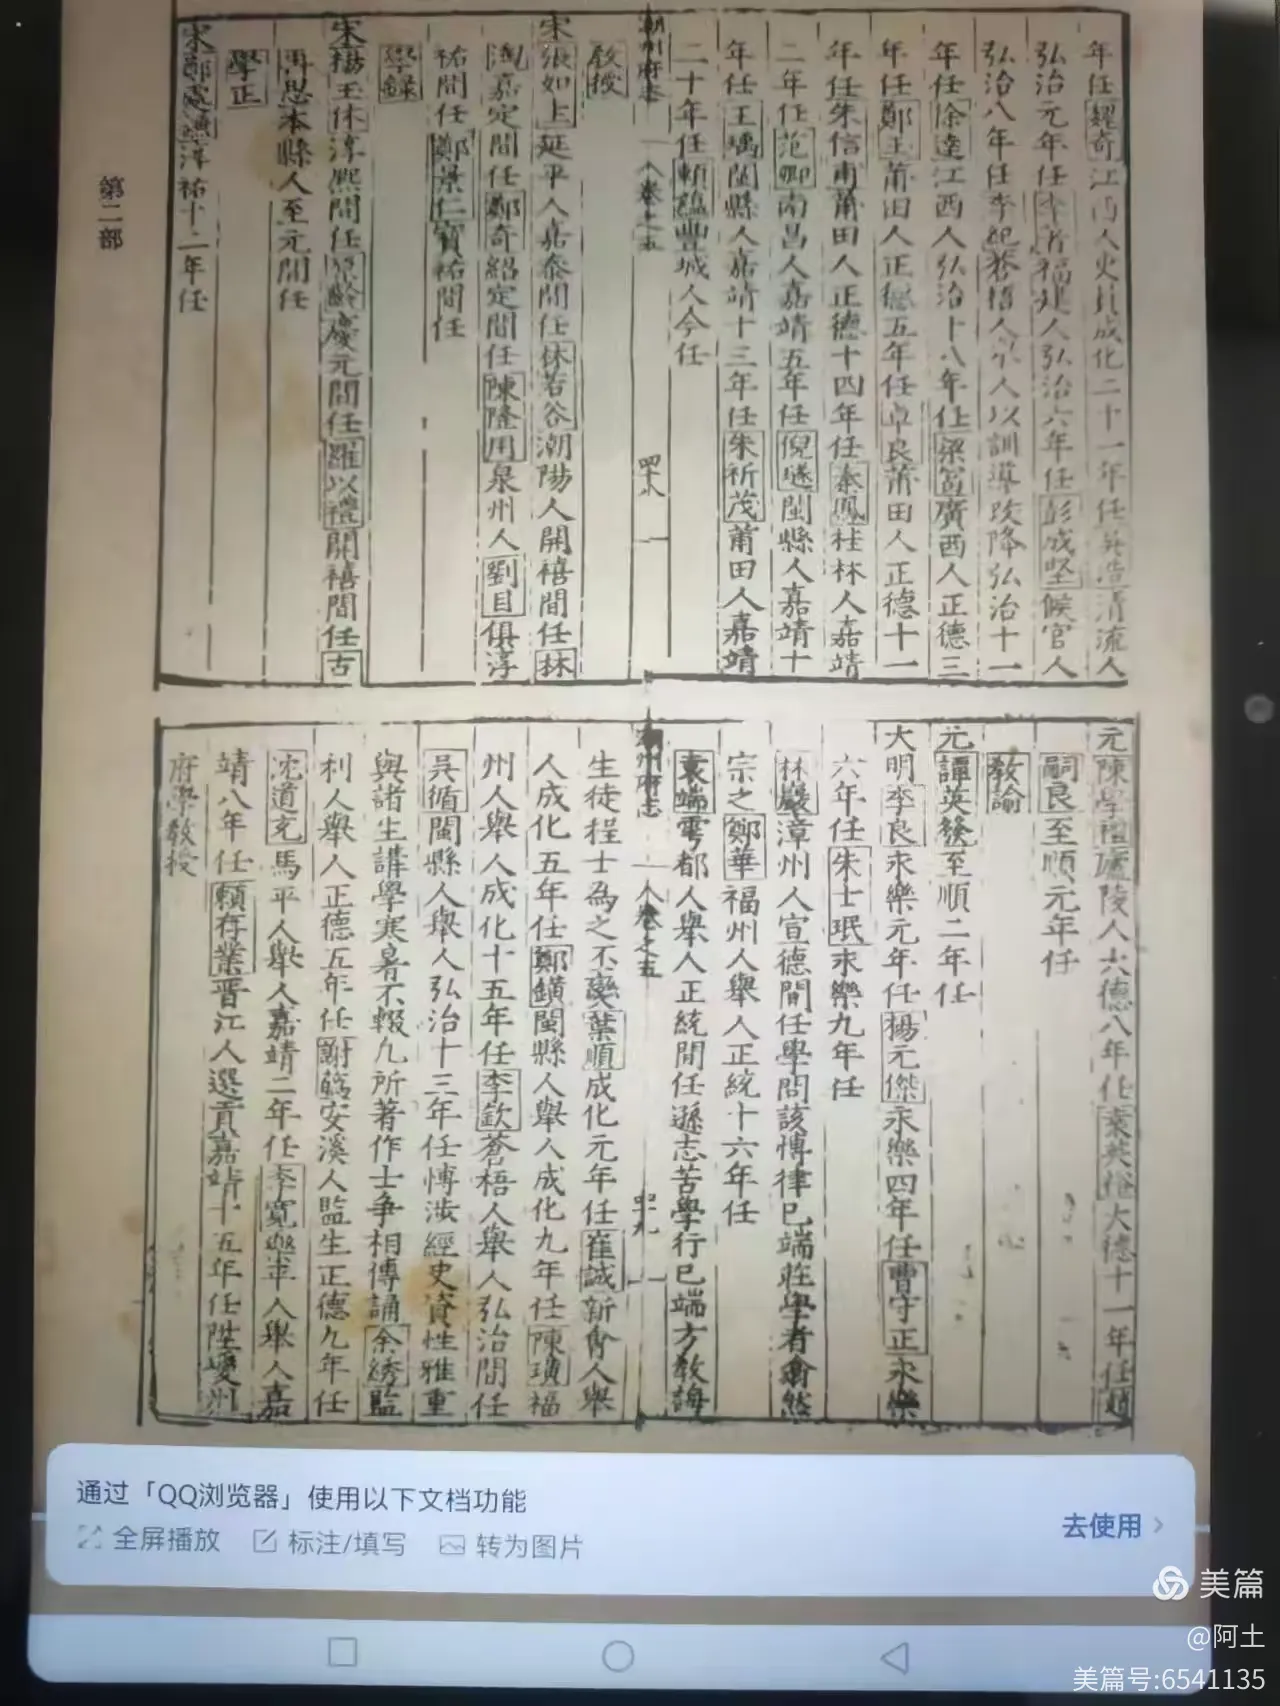 年任魏奇江西人吏員成化二十一年任吳造清流人
弘治元年任李 福建人弘治六年任彭成堅候官人
弘治八年任李 蒼梧人 人以訓導改降弘治十一
年任徐達江西人弘治十八年任梁 廣西人正德三
年任鄭玉莆田人正德五年任卓良莆田人正德十一
年任朱信甫莆田人正德十四年任秦鳳桂林人嘉靖
二年任范卿南昌人嘉靖五年任倪璲閩縣人嘉靖十
年任王瑀閩縣人嘉靖十三年任朱祈茂莆田人嘉靖
二十年任賴 豐城人今任
潮州府志
卷之五
四十八
教授
宋張如上延平人嘉泰間任林若谷潮陽人開禧間任林
嘉定間任鄭奇紹定間任陳隆用泉州人劉目俱淳
祐間任鄭景仁寶祐間任
學錄
宋楊玉休淳熙間任 齡慶元間任羅以禮開禧間任古
再思本縣人至元間任
學正
宋鄭處 淳祐十二年任
第二部
元陳學禮廬陵人大德八年任袁英 大德十一年任趙
嗣良至順元年任
教諭
元譚英發至順二年任
大明李良永樂元年任楊元傑永樂四年任曹守正永樂
六年任朱士珉永樂九年任
林巖漳州人宣德間任學問該博律己端莊學者翕然
宗之鄭華福州人舉人正統十六年任
袁端雩都人舉人正統間任遜志苦學行己端方教誨
潮州府志
卷之五
四十九
生徒程士為之丕變葉順成化元年任崔誠新會人舉
人成化五年任鄭鐄閩縣人舉人成化九年任陳璜福
州人舉人成化十五年任李欽蒼梧人舉人弘治間任
吳循閩縣人舉人弘治十三年任博涉經史資性雅重
與諸生講學寒暑不輟凡所著作士爭相傳誦余綉監
利人舉人正德五年任謝 安溪人監生正德九年任
沈道充馬平人舉人嘉靖二年任李寬樂平人舉人嘉
靖八年任賴存業晋江人選貢嘉靖十五年任陞夔州
府學教授
通过「QQ浏览器」使用以下文档功能
全屏播放 标注/填写 转为图片
去使用 >
美篇
@阿土
美篇号:6541135